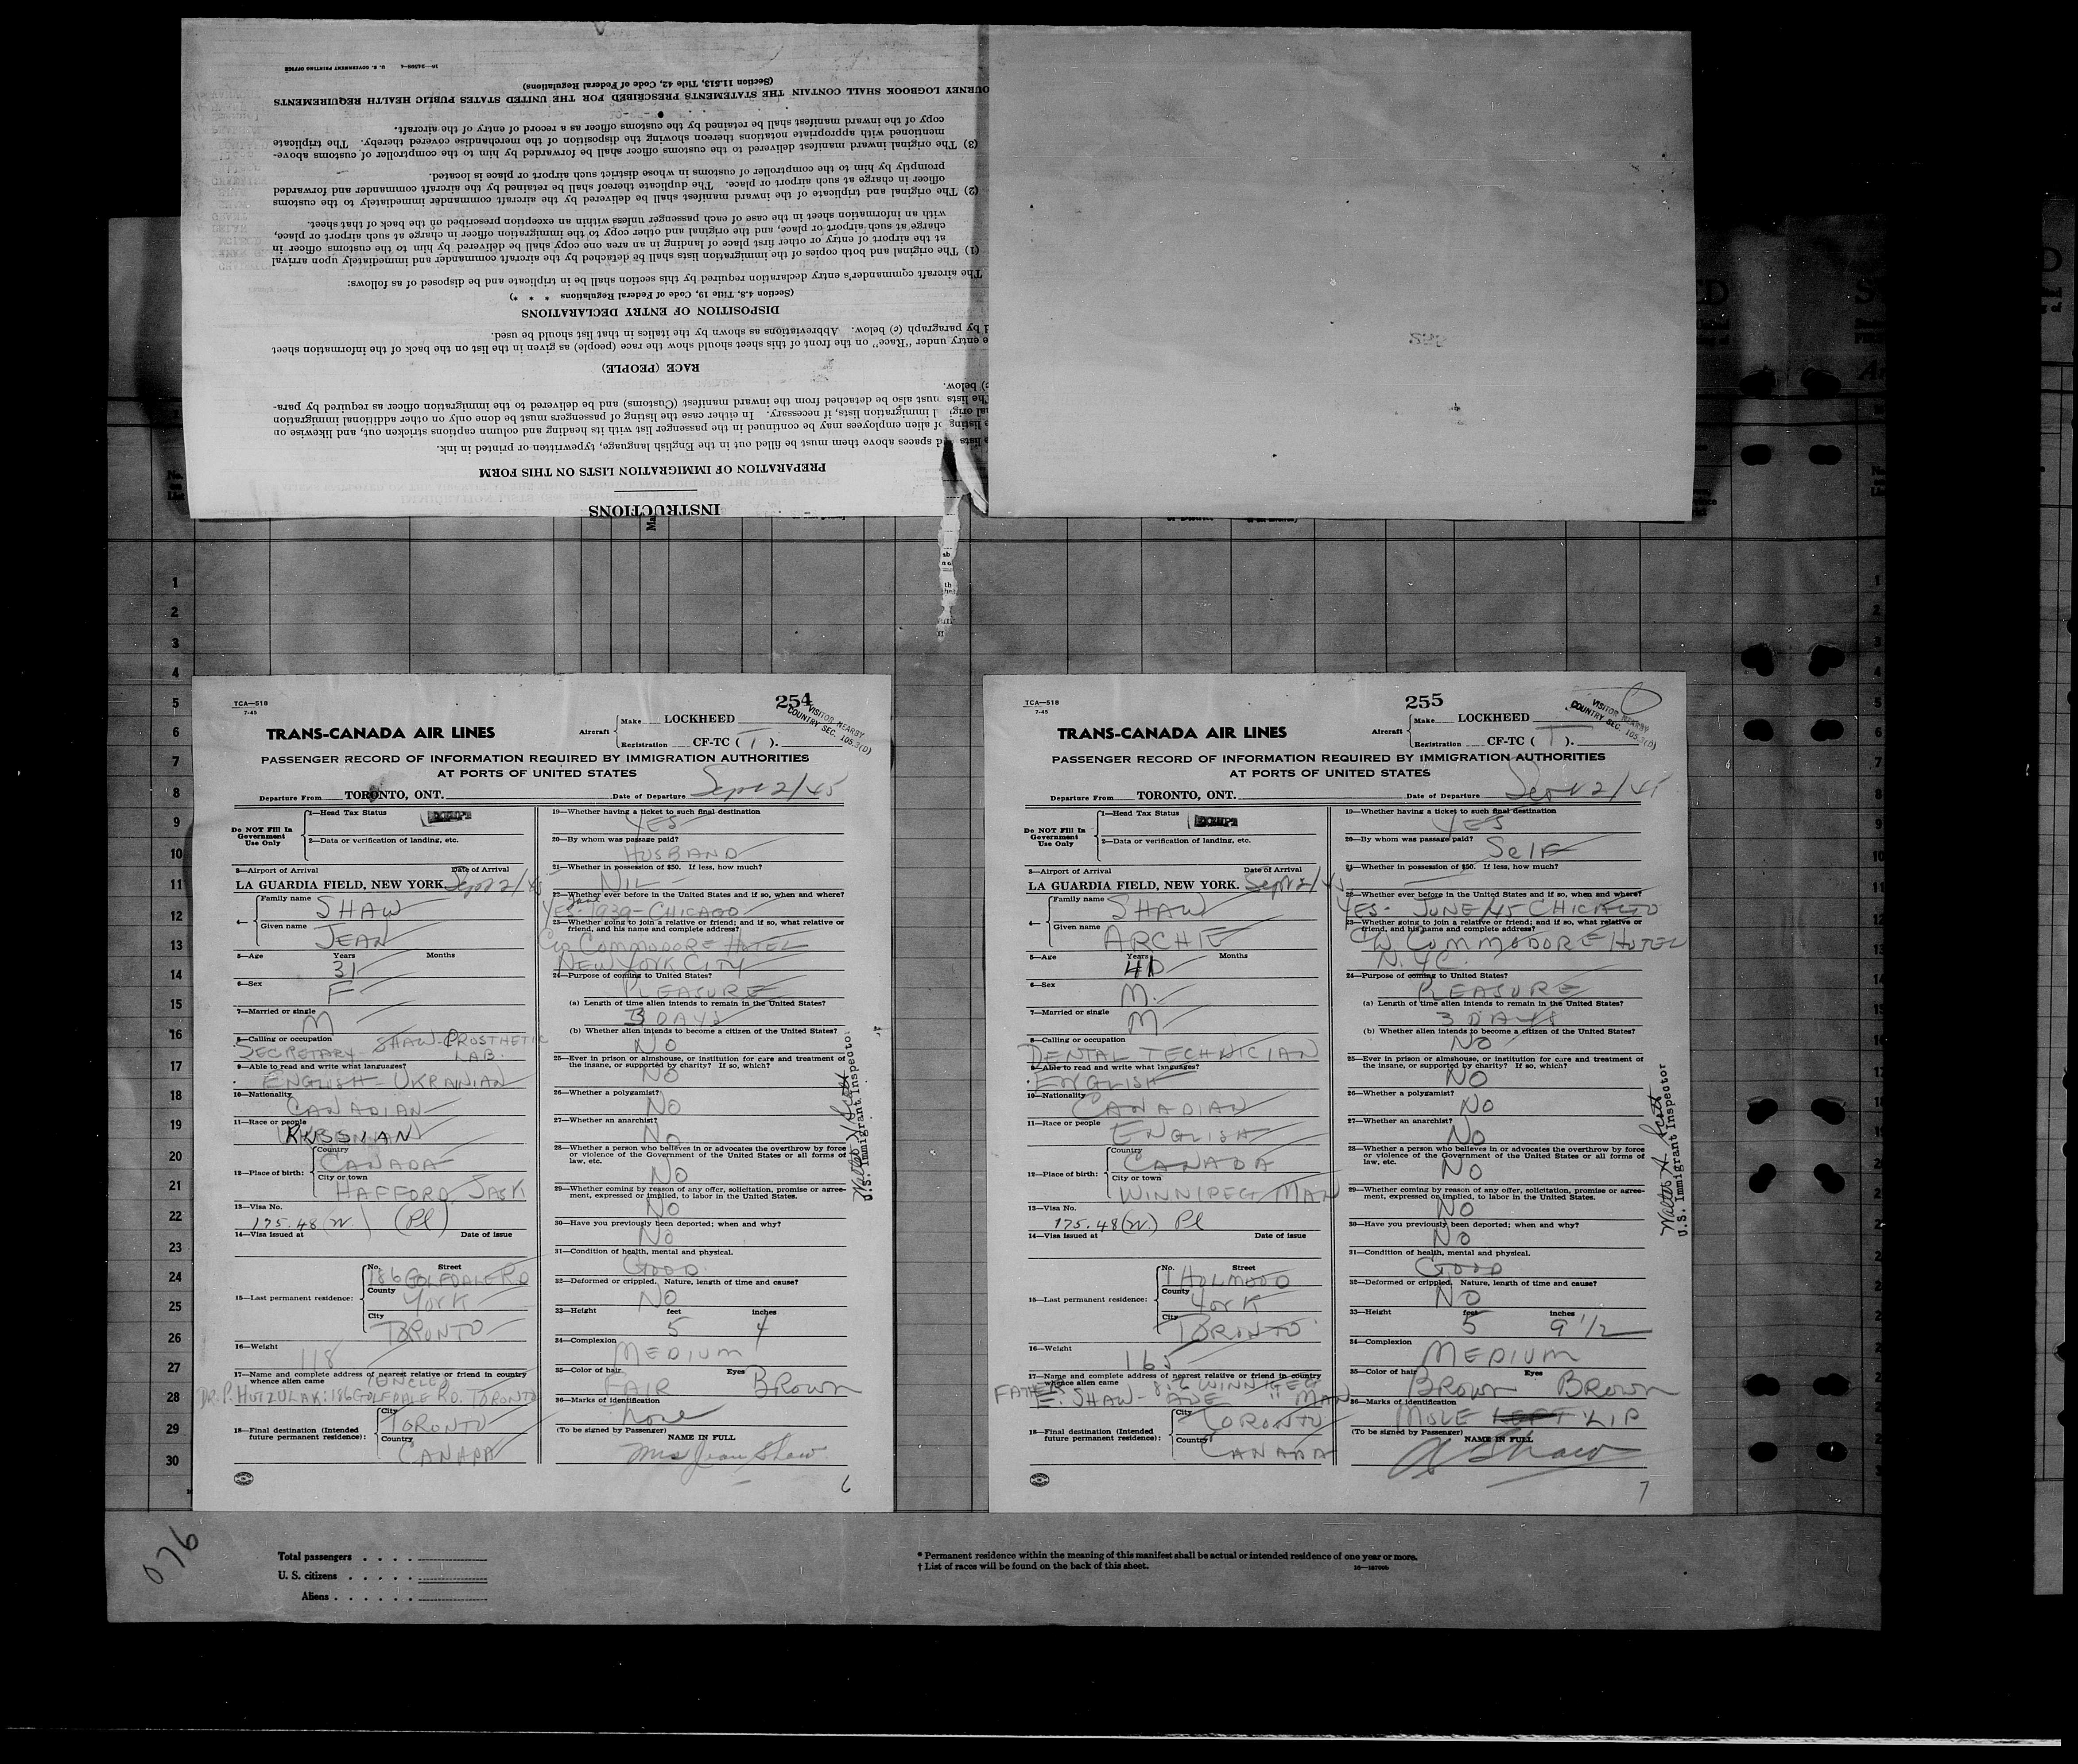 INSTRUCTIONS
PREPARATION OF IMMIGRATION LISTS ON THIS FORM
lists and spaces above them must be filled out in the English language, typewritten or printed in ink.
listing of alien employees may be continued in the passenger list with its heading and column captions stricken out, and likewise on
immigration lists, if necessary. In either case the listing of passengers must be done only on other additional immigration
lists must also be detached from the inward manifest (Customs) and be delivered to the immigration officer as required by para-
below.
RACE (PEOPLE)
entry under "Race" on the front of this sheet should show the race (people) as given in the list on the back of the information sheet
by paragraph (c) below. Abbreviations as shown by the italics in that list should be used.
DISPOSITION OF ENTRY DECLARATIONS
(Section 4.8, Title 19, Code of Federal Regulations * * *)
The aircraft commander's entry declaration required by this section shall be in triplicate and be disposed of as follows:
(1) The original and both copies of the immigration lists shall be detached by the aircraft commander and immediately upon arrival
at the airport of entry or other first place of landing in an area one copy shall be delivered by him to the customs officer in
charge at such airport or place, and the original and other copy to the immigration officer in charge at such airport or place,
with an information sheet in the case of each passenger unless within an exception prescribed on the back of that sheet.
(2) The original and triplicate of the inward manifest shall be delivered by the aircraft commander immediately to the customs
officer in charge at such airport or place. The duplicate thereof shall be retained by the aircraft commander and forwarded
promptly by him to the comptroller of customs in whose district such airport or place is located.
(3) The original inward manifest delivered to the customs officer shall be forwarded by him to the comptroller of customs above-
mentioned with appropriate notations thereon showing the disposition of the merchandise covered thereby. The triplicate
copy of the inward manifest shall be retained by the customs officer as a record of entry of the aircraft.
OURNEY LOGBOOK SHALL CONTAIN THE STATEMENTS PRESCRIBED FOR THE UNITED STATES PUBLIC HEALTH REQUIREMENTS
(Section 11.513, Title 42, Code of Federal Regulations)
U. S. GOVERNMENT PRINTING OFFICE
1
2
3
4
5
6
7
8
9
10
11
12
13
14
15
16
17
18
19
20
21
22
23
24
25
26
27
28
29
30
TCA—518
7-45
254
VISITOR NEARBY
COUNTRY SEC. 105.3(D)
TRANS-CANADA AIR LINES
Aircraft
Make LOCKHEED
Registration CF-TC ( T ).
PASSENGER RECORD OF INFORMATION REQUIRED BY IMMIGRATION AUTHORITIES
AT PORTS OF UNITED STATES
Departure From TORONTO, ONT. Date of Departure Sept 2/45
Do NOT Fill In Government Use Only
1—Head Tax Status EXEMPT
2—Data or verification of landing, etc.
3—Airport of Arrival Date of Arrival
LA GUARDIA FIELD, NEW YORK. Sept 2/45
4— Family name SHAW
Given name JEAN
5—Age Years Months
31
6—Sex
F
7—Married or single
M
8—Calling or occupation
SECRETARY - SHAW-PROSTHETIC LAB.
9—Able to read and write what languages?
ENGLISH - UKRAINIAN
10—Nationality
CANADIAN
11—Race or people
RUSSIAN
12—Place of birth:
Country CANADA
City or town HAFFORD, SASK
13—Visa No.
175.48 (W.) (Pl)
14—Visa issued at Date of issue
15—Last permanent residence:
No. Street
186 GOLFDALE RD
County York
City TORONTO
16—Weight
118
17—Name and complete address of nearest relative or friend in country whence alien came
(UNCLE)
DR. P. HUTZULAK: 186 GOLFDALE RD. TORONTO
18—Final destination (Intended future permanent residence):
City TORONTO
Country CANADA
19—Whether having a ticket to such final destination
YES
20—By whom was passage paid?
HUSBAND
21—Whether in possession of $50. If less, how much?
NIL
22—Whether ever before in the United States and if so, when and where?
YES - June 1939 - CHICAGO
23—Whether going to join a relative or friend; and if so, what relative or friend, and his name and complete address?
C/O COMMODORE HOTEL
NEW YORK CITY
24—Purpose of coming to United States?
PLEASURE
(a) Length of time alien intends to remain in the United States?
3 DAYS
(b) Whether alien intends to become a citizen of the United States?
NO
25—Ever in prison or almshouse, or institution for care and treatment of the insane, or supported by charity? If so, which?
NO
26—Whether a polygamist?
NO
27—Whether an anarchist?
NO
28—Whether a person who believes in or advocates the overthrow by force or violence of the Government of the United States or all forms of law, etc.
NO
29—Whether coming by reason of any offer, solicitation, promise or agreement, expressed or implied, to labor in the United States.
NO
30—Have you previously been deported; when and why?
NO
31—Condition of health, mental and physical.
GOOD
32—Deformed or crippled. Nature, length of time and cause?
NO
33—Height feet inches
5 4
34—Complexion
MEDIUM
35—Color of hair Eyes
FAIR BROWN
36—Marks of identification
none
(To be signed by Passenger) NAME IN FULL
Mrs Jean Shaw
Walter H. Scott
U.S. Immigrant Inspector
6
TCA—518
7-45
255
VISITOR NEARBY
COUNTRY SEC. 105.3(D)
TRANS-CANADA AIR LINES
Aircraft
Make LOCKHEED
Registration CF-TC ( T ).
PASSENGER RECORD OF INFORMATION REQUIRED BY IMMIGRATION AUTHORITIES
AT PORTS OF UNITED STATES
Departure From TORONTO, ONT. Date of Departure Sept 2/45
Do NOT Fill In Government Use Only
1—Head Tax Status EXEMPT
2—Data or verification of landing, etc.
3—Airport of Arrival Date of Arrival
LA GUARDIA FIELD, NEW YORK. Sept 2/45
4— Family name SHAW
Given name ARCHIE
5—Age Years Months
6—Sex
M.
7—Married or single
M
8—Calling or occupation
DENTAL TECHNICIAN
9—Able to read and write what languages?
ENGLISH
10—Nationality
CANADIAN
11—Race or people
ENGLISH
12—Place of birth:
Country CANADA
City or town WINNIPEG MAN
13—Visa No.
175.48 (W.) Pl
14—Visa issued at Date of issue
15—Last permanent residence:
No. Street
1 HOLMWOOD
County York
City TORONTO
16—Weight
165
17—Name and complete address of nearest relative or friend in country whence alien came
FATHER
E. SHAW - WINNIPEG MAN
18—Final destination (Intended future permanent residence):
City TORONTO
Country CANADA
19—Whether having a ticket to such final destination
YES
20—By whom was passage paid?
SELF
21—Whether in possession of $50. If less, how much?
22—Whether ever before in the United States and if so, when and where?
YES - JUNE/45 CHICAGO
23—Whether going to join a relative or friend; and if so, what relative or friend, and his name and complete address?
C/O COMMODORE HOTEL
N.Y.C.
24—Purpose of coming to United States?
PLEASURE
(a) Length of time alien intends to remain in the United States?
3 DAYS
(b) Whether alien intends to become a citizen of the United States?
NO
25—Ever in prison or almshouse, or institution for care and treatment of the insane, or supported by charity? If so, which?
NO
26—Whether a polygamist?
NO
27—Whether an anarchist?
NO
28—Whether a person who believes in or advocates the overthrow by force or violence of the Government of the United States or all forms of law, etc.
NO
29—Whether coming by reason of any offer, solicitation, promise or agreement, expressed or implied, to labor in the United States.
NO
30—Have you previously been deported; when and why?
NO
31—Condition of health, mental and physical.
GOOD
32—Deformed or crippled. Nature, length of time and cause?
NO
33—Height feet inches
5 9 1/2
34—Complexion
MEDIUM
35—Color of hair Eyes
BROWN BROWN
36—Marks of identification
MOLE LEFT LIP
(To be signed by Passenger) NAME IN FULL
A Shaw
Walter H. Scott
U.S. Immigrant Inspector
7
076
Total passengers
U. S. citizens
Aliens
* Permanent residence within the meaning of this manifest shall be actual or intended residence of one year or more.
† List of races will be found on the back of this sheet.